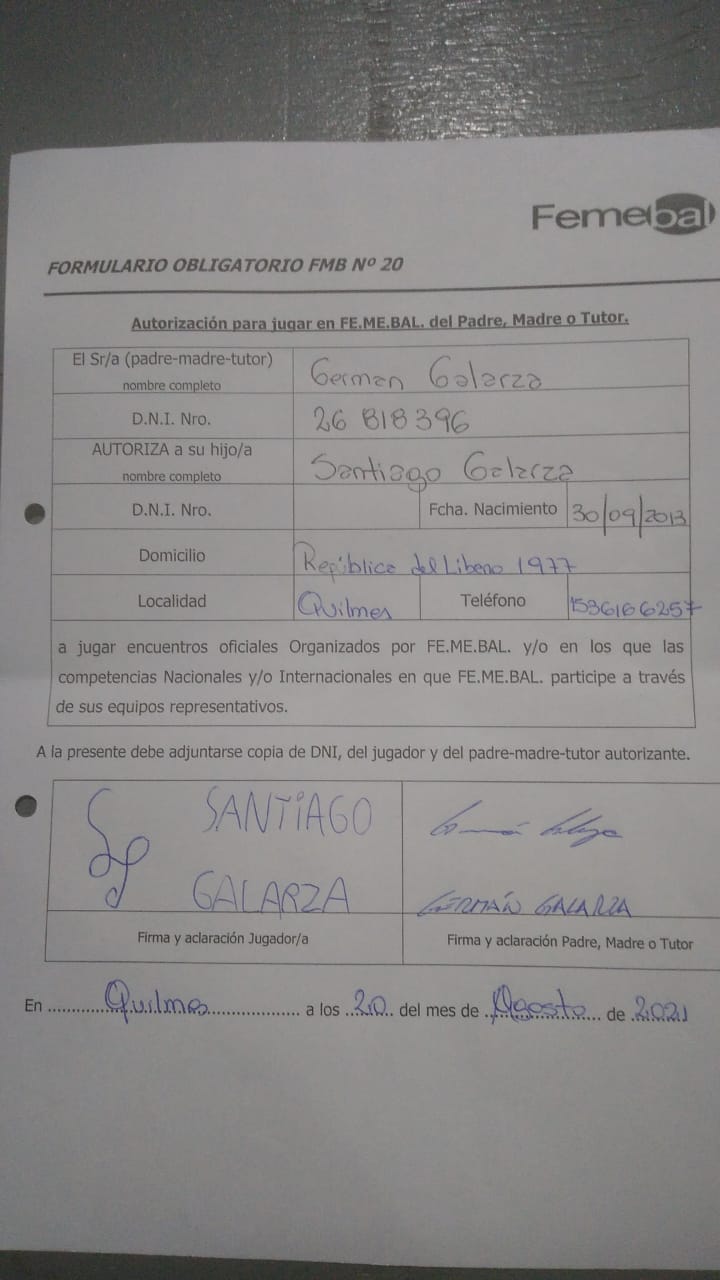 Femebal
FORMULARIO OBLIGATORIO FMB Nº 20
Autorización para jugar en FE.ME.BAL. del Padre, Madre o Tutor.
El Sr/a (padre-madre-tutor)
nombre completo
German Galarza
D.N.I. Nro.
26 818 396
AUTORIZA a su hijo/a
nombre completo
Santiago Galarza
D.N.I. Nro.
Fcha. Nacimiento 30/09/2013
Domicilio
República del Libano 1977
Localidad
Quilmes
Teléfono
1536166257
a jugar encuentros oficiales Organizados por FE.ME.BAL. y/o en los que las
competencias Nacionales y/o Internacionales en que FE.ME.BAL. participe a través
de sus equipos representativos.
A la presente debe adjuntarse copia de DNI, del jugador y del padre-madre-tutor autorizante.
SANTIAGO
GALARZA
GERMÁN GALARZA
Firma y aclaración Jugador/a
Firma y aclaración Padre, Madre o Tutor
En Quilmes a los 20 del mes de Agosto de 2021